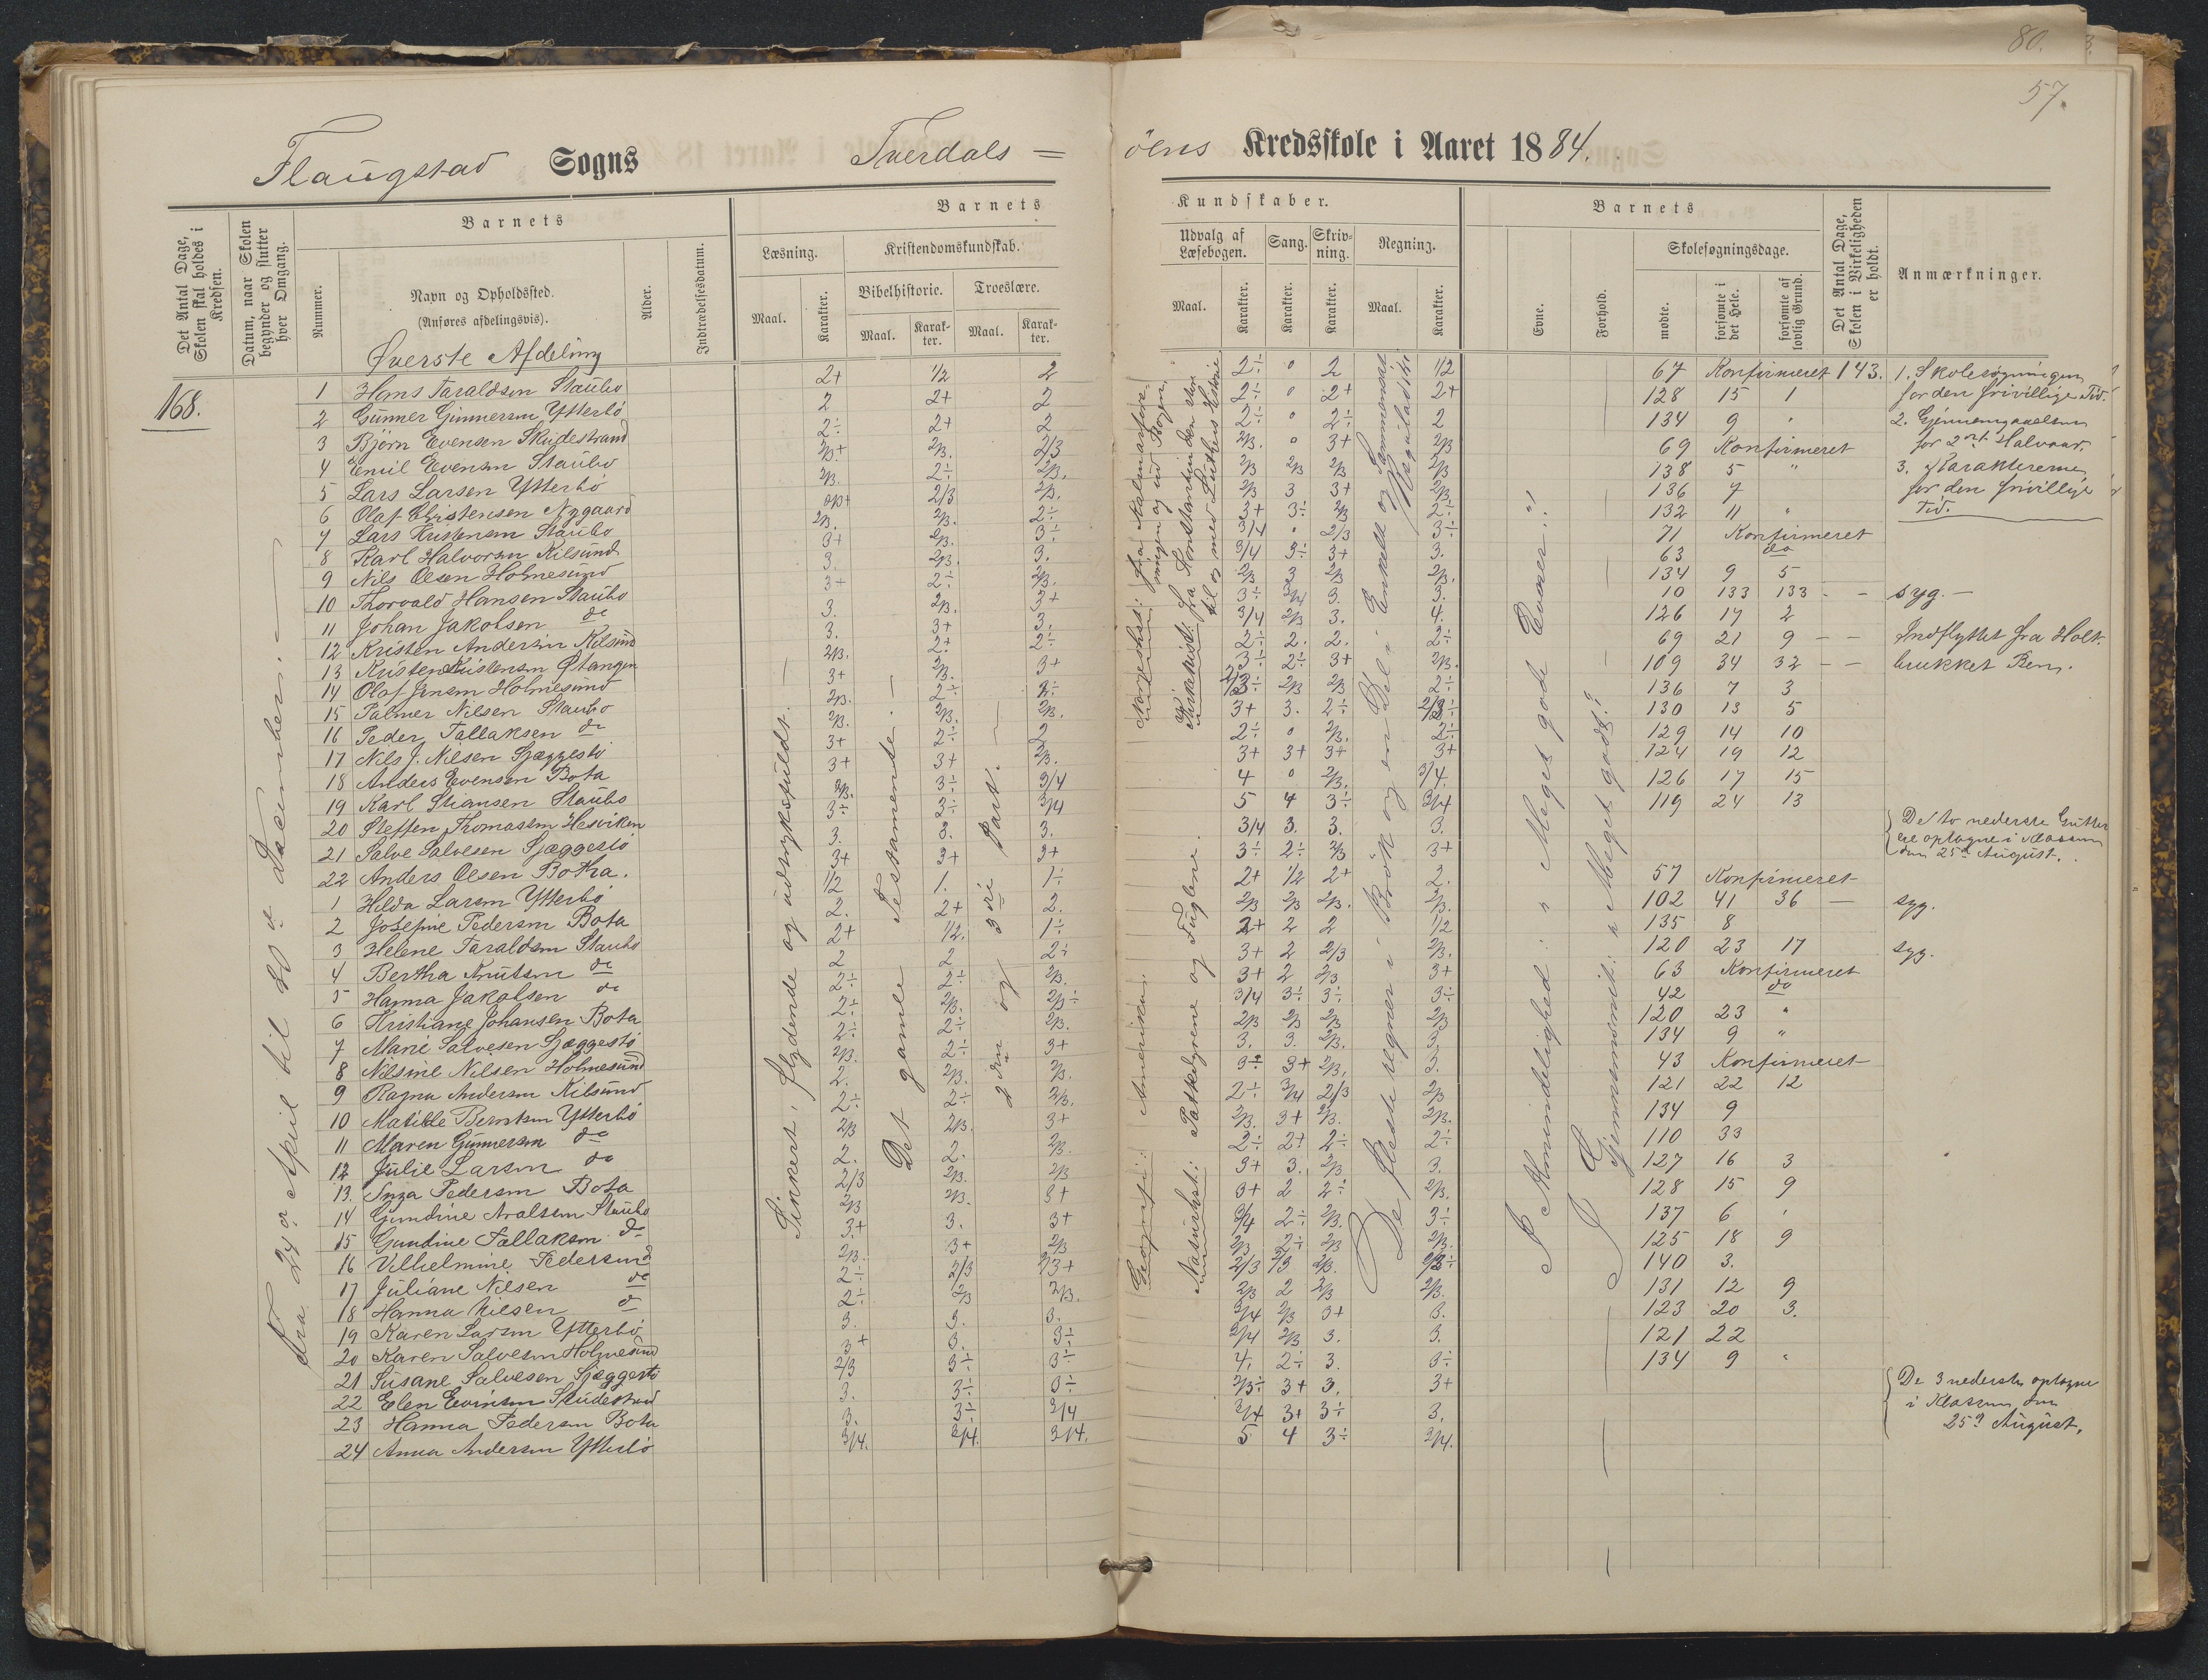 80.
57.
Flaugstad Sogns Tverdals=
öens Kredsskole i Aaret 1884.
Det Antal Dage, Skolen skal holdes i Kredsen.
Datum, naar Skolen begynder og slutter hver Omgang.
Nummer.
Barnets
Navn og Opholdssted.
(Anføres afdelingsvis).
Alder.
Indtrædelsesdatum.
Barnets
Læsning.
Maal.
Karakter.
Kristendomskundskab.
Bibelhistorie.
Maal.
Karakter.
Troeslære.
Maal.
Karakter.
Kundskaber.
Udvalg af Læsebogen.
Maal.
Karakter.
Sang.
Karakter.
Skrivning.
Karakter.
Regning.
Maal.
Karakter.
Barnets
Evne.
Forhold.
Skolesøgningsdage.
mødte.
forsømte i det Hele.
forsømte af lovlig Grund.
Det Antal Dage, Skolen i Virkeligheden er holdt.
Anmærkninger.
Øverste Afdeling
168.
Fra 24de April til 20de December.
1 Hans Taraldsen Staubo 2+ 1/2 2 2÷ 0 2 1/2 67 Konfirmeret 143.
2 Gunner Gunnersen Ytterbö 2 2+ 2 2÷ 0 2+ 2+ 128 15 1
3 Björn Evensen Skudestrand 2÷ 2+ 2 2÷ 0 2÷ 2 134 9 "
4 Emil Evensen Staubo 2/3+ 2/3. 2/3 2/3. 0 3+ 2/3 69 Konfirmeret
5 Lars Larsen Ytterbö 2/3. 2÷ 2/3. 2/3 2/3 2/3 2/3 138 5 "
6 Olaf Christensen Nygaard 2/3 2/3. 2/3 3 3+ 2/3. 136 7
7 Lars Kristensen Staubo 2/3. 2/3. 2÷ 3+ 3÷ 2/3 2÷ 132 11 "
8 Karl Halvorsen Kilsund 3+ 2/3. 3÷ 3/4 " 2/3 3÷ 71 Konfirmeret
9 Nils Olsen Holmesund 3. 2/3. 3. 3/4 3÷ 3+ 3. 63 do
10 Thorvald Hansen Staubo 3+ 2÷ 2/3. 2/3 3 2/3 2/3. 134 9 5
11 Johan Jakobsen do 3. 2/3. 3+ 3÷ 3/4 3. 3. 10 133 133 - - syg.
12 Kristen Andersen Kilsund 3. 3+ 3. 3/4 2/3 3. 4. 126 17 2
13 Kristen Kristensen Østangen 2/3. 2+ 2÷ 2÷ 2. 2. 2÷ 69 21 9 - - Indflyttet fra Holt.
14 Olaf Jensen Holmesund 3+ 2/3. 3+ 3÷ 2÷ 3+ 2/3. 109 34 32 - - brukket Ben.
15 Palmer Nilsen Staubo 2/3. 2÷ 2÷ 2/3÷ 2/3 2/3 2÷ 136 7 3
16 Peder Tallaksen do 2/3. 2/3. 2/3. 3+ 3. 2÷ 2/3÷ 130 13 5
17 Nils J. Nilsen Sjæggestö 3+ 2÷ 2 2÷ 0 2/3. 2÷ 129 14 10
18 Anders Evensen Bota 3+ 3+ 2/3. 3+ 3+ 3+ 3+ 124 19 12
19 Karl Stiansen Staubo 2/3. 3÷ 3/4 4 0 2/3. 3/4. 126 17 15
20 Steffen Thomassen Hesviken 3÷ 3÷ 3/4 5 4 3÷ 3/4 119 24 13
21 Salve Salvesen Sjæggestö 3. 3. 3. 3/4 3. 3. 3.
22 Anders Olsen Botha. 3+ 3+ 3+ 3÷ 2÷ 2/3 3+
1 Hilda Larsen Ytterbö 1/2 1. 1÷ 2+ 1/2 2+ 2. 57 Konfirmeret
2 Josefine Pedersen Bota 2. 2+ 2. 2/3 2/3 2/3. 2/3. 102 41 36 — syg.
3 Helene Taraldsen Staubo 2+ 1/2. 1÷ 2+ 2 2 1/2 135 8
4 Bertha Knutsen do 2 2 2÷ 3+ 2 2/3 2/3. 120 23 17 syg.
5 Hanna Jakobsen do 2÷ 2÷ 2/3. 3+ 2 2/3 3+ 63 Konfirmeret
6 Kristiane Johansen Bota 2÷ 2/3. 2/3÷ 3/4 3÷ 3÷ 3÷ 42 do
7 Marie Salvesen Sjæggestö 2÷ 2÷ 2/3. 2/3 2/3 2/3 2/3 120 23 "
8 Nilsine Nilsen Holmesund 2/3. 2÷ 3+ 3. 3. 2/3. 3 134 9 "
9 Ragna Andersen Kilsund 2. 2/3. 2/3. 3÷ 3+ 2/3. 3. 43 Konfirmeret
10 Matilde Berntsen Ytterbö 2÷ 2÷ 2/3. 2÷ 3/4 2/3 2/3 121 22 12
11 Maren Gunnersen do 2/3 2/3. 3+ 2/3. 3+ 2/3. 2/3. 134 9
12 Julie Larsen do 2. 2. 2/3. 2÷ 2+ 2÷ 2÷ 110 33
13. Inga Pedersen Bota 2/3 2/3. 2/3 3+ 3. 2/3 3. 127 16 3
14 Gundine Aralsen Staubo 2/3 2/3. 3+ 3+ 2 2÷ 2/3. 128 15 9
15 Gundine Tallaksen do 3+ 3. 3+ 3/4 2÷ 2/3. 3÷ 137 6
16 Vilhelmine Pedersen do 2/3. 3+ 2/3 2/3 2÷ 2/3 2/3. 125 18 9
17 Juliane Nilsen do 2÷ 2/3 2/3+ 2/3 2/3 2/3. 2/3÷ 140 3.
18 Hanna Nilsen do 2÷ 2/3 2/3. 2/3 2 2/3 2/3. 131 12 9
19 Karen Larsen Ytterbö 3. 3. 3. 3/4 2/3 3+ 3. 123 20 3.
20 Karen Salvesen Holmesund 3+ 3. 3÷ 3/4 2/3 3. 3. 121 22
21 Susane Salvesen Sjæggestö 2/3 3÷ 3÷ 4. 2÷ 3. 3÷ 134 9 "
22 Elen Evensen Skudestrand 3. 3÷ 3÷ 2/3÷ 3+ 3. 3+
23 Hanna Pedersen Bota 3. 3÷ 3/4 3/4 3+ 3÷ 3.
24 Anna Andersen Ytterbö 3/4. 3/4. 3/4. 5 4 3÷ 3/4.
Sikkert, flydende og udtryksfuldt.
Det gamle Testamente.
2den og 3die Part.
Norgeshist: fra Kalmarforeningen og ud Bogen.
Kirkehist: fra Konstantin den store til og med Luthers Historie
Geografi: Amerika.
Naturhist: Pattedyrene og Fuglene.
De fleste regner i Brök og en Del i Enkelt og Sammensat Reguladetri.
I Almindelighed: Meget gode Evner.
I Gjennemsnit: Meget godt.
1. Skolesøgningen for den frivillige Tid.
2. Gjennemgaaelsen for 2det Halvaar.
3. Karaktererne for den frivillige Tid.
De to nederste Gutter ere optagne i Klassen den 25de August.
De 3 nederste optagne i Klassen den 25de August.